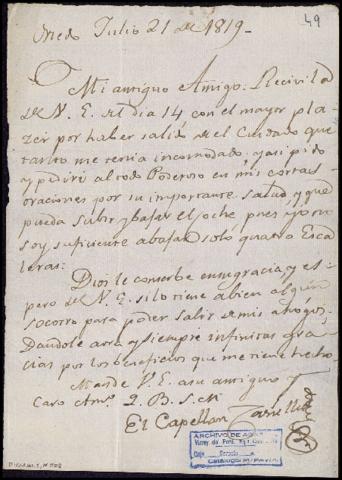 49
Julio 21 de 1819.
Mi antiguo Amigo: Recivi la
de V. E. del dia 14 con el mayor pla-
zer por haber salido del Cuidado que
tanto me tenia incomodado, y asi pido
y pediré al todo Poderoso en mis cortas
oraciones por su importante salud, y que
pueda subir y bajar el coche pues yo no
soy suficiente abajar solo quatro Esca
leras:
Dios le conserbe en su gracia, y es
pero de V. E. si lo tiene abien algun
socorro para poder salir de mis ahogos,
Dandole aora y siempre infinitas gra
cias por los beneficios que me tiene hecho.
Mande V. E. a su antiguo y
Caro Amo. Q. B. S. M.
El Capellan
ARCHIVO DE
Virrey del Perú
Caja